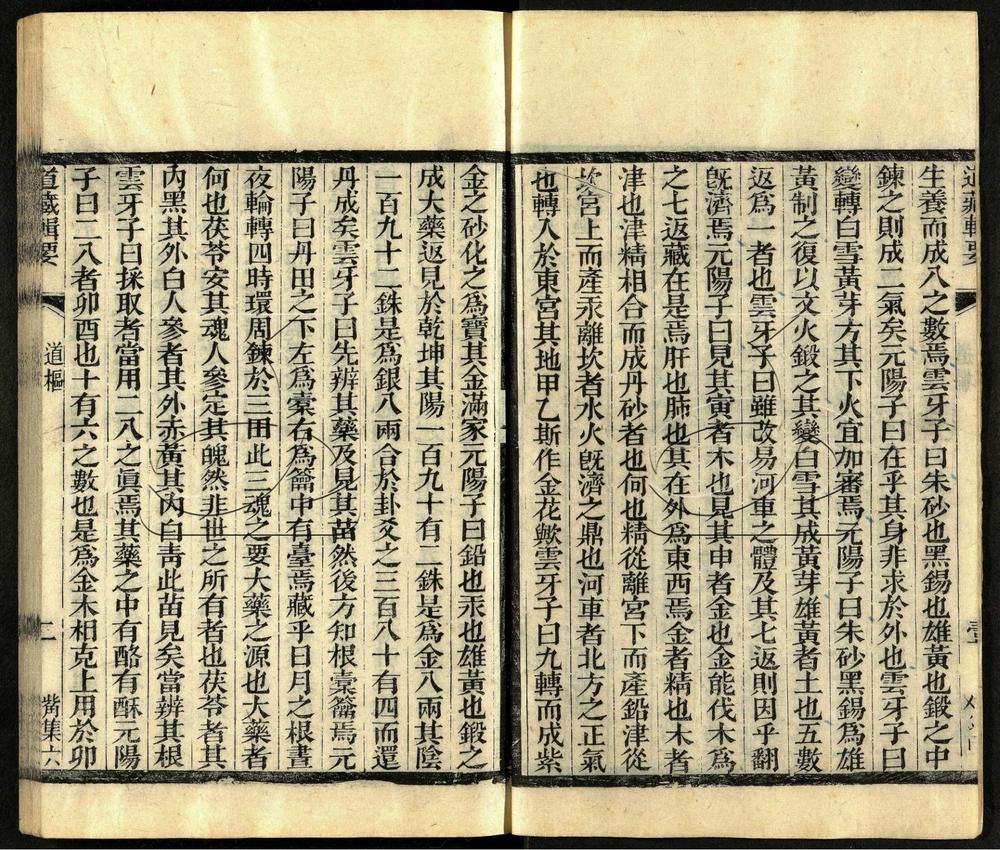 生養而成八之數焉雲牙子曰朱砂也黑錫也雄黃也鍛之中
鍊之則成二氣矣元陽子曰在乎其身非求於外也雲牙子曰
變轉白雪黃芽方其下火宜加審焉元陽子曰朱砂黑錫爲雄
黃制之復以文火鍛之其變白雪其成黃芽雄黃者土也五數
返爲一者也雲牙子曰雖改易河車之體及其七返則因乎翻
旣濟焉元陽子曰見其寅者木也見其申者金也金能伐木爲
之七返藏在是焉肝也肺也其在外爲東西焉金者精也木者
津也津精相合而成丹砂者也何也精從離宮下而產鉛津從
坎宮上而產汞離坎者水火旣濟之鼎也河車者北方之正氣
也轉入於東宮其地甲乙斯作金花歟雲牙子曰九轉而成紫
金之砂化之爲寶其金滿家元陽子曰鉛也汞也雄黃也鍛之
成大藥返見於乾坤其陽一百九十有二銖是爲金八兩其陰
一百九十二銖是爲銀八兩合於卦爻之三百八十有四而還
丹成矣雲牙子曰先辨其藥及見其苗然後方知根橐籥焉元
陽子曰丹田之下左爲橐右爲籥中有臺焉藏乎日月之根晝
夜輪轉四時環周鍊於三田此三魂之要大藥之源也大藥者
何也茯苓安其魂人參定其魄然非世之所有者也茯苓者其
內黑其外白人參者其外赤黃其內白靑此苗見矣當辨其根
雲牙子曰採取者當用二八之眞焉其藥之中有酪有酥元陽
子曰二八者卯酉也十有六之數也是爲金木相克上用於卯
道藏輯要 道樞 二 觜集六